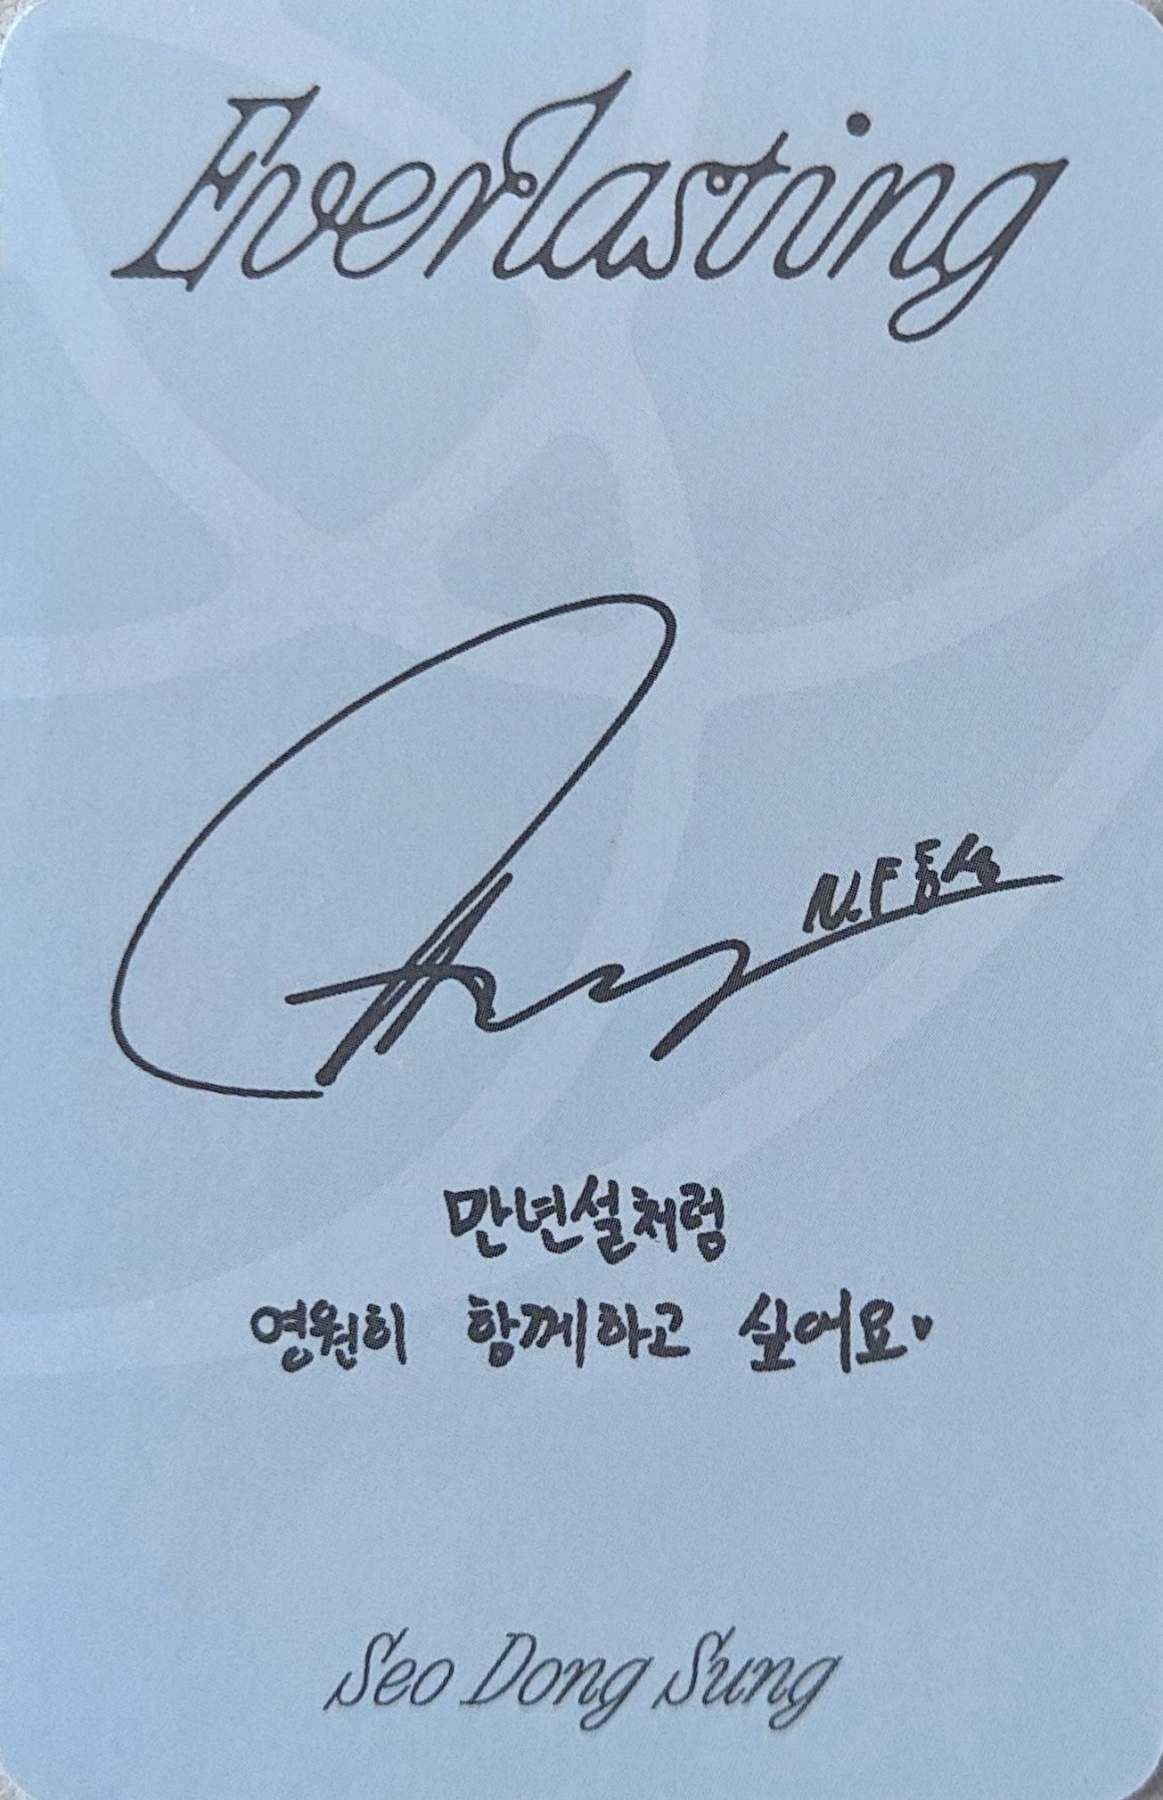 Everlasting
N.F동성
만년설처럼
영원히 함께하고 싶어요♥
Seo Dong Sung